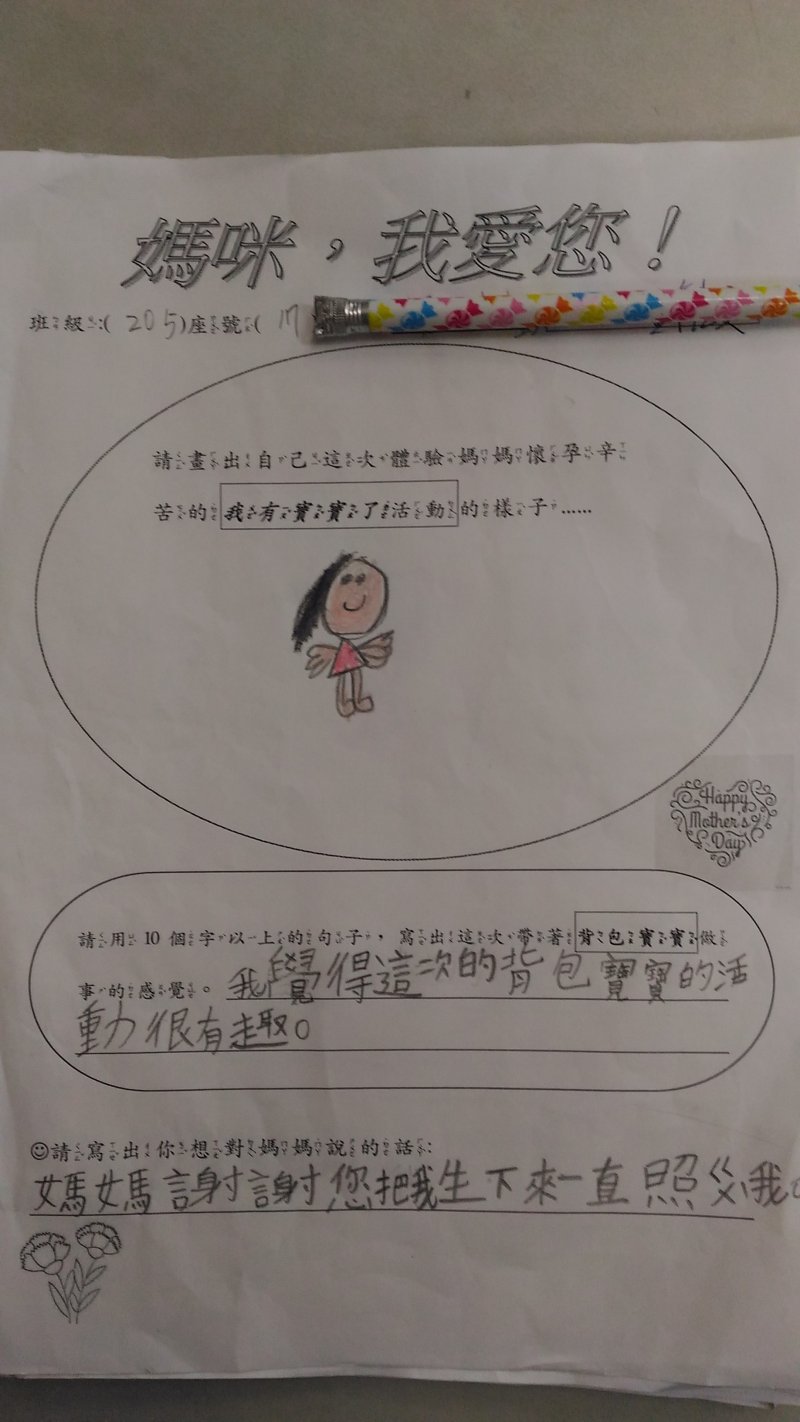 媽咪，我愛您！
班級:( 205)座號( 17
請畫出自己這次體驗媽媽懷孕辛
苦的我有寶寶了活動的樣子……
Happy
Mother's
Day
請用 10 個字以上的句子，寫出這次帶著背包寶寶做
事的感覺。我覺得這次的背包寶寶的活
動很有趣。
☺請寫出你想對媽媽說的話:
媽媽謝謝您把我生下來一直照ㄍㄨˋ我。